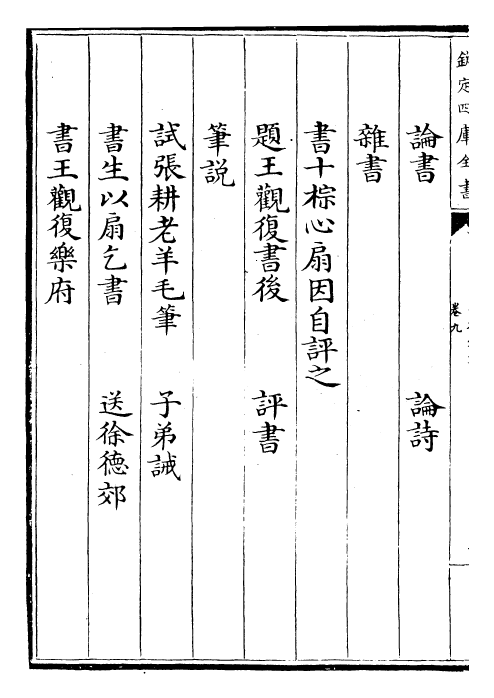 欽定四庫全書
卷九
論書 論詩
雜書
書十棕心扇因自評之
題王觀復書後 評書
筆説
試張耕老羊毛筆 子弟誡
書生以扇乞書 送徐德郊
書王觀復樂府